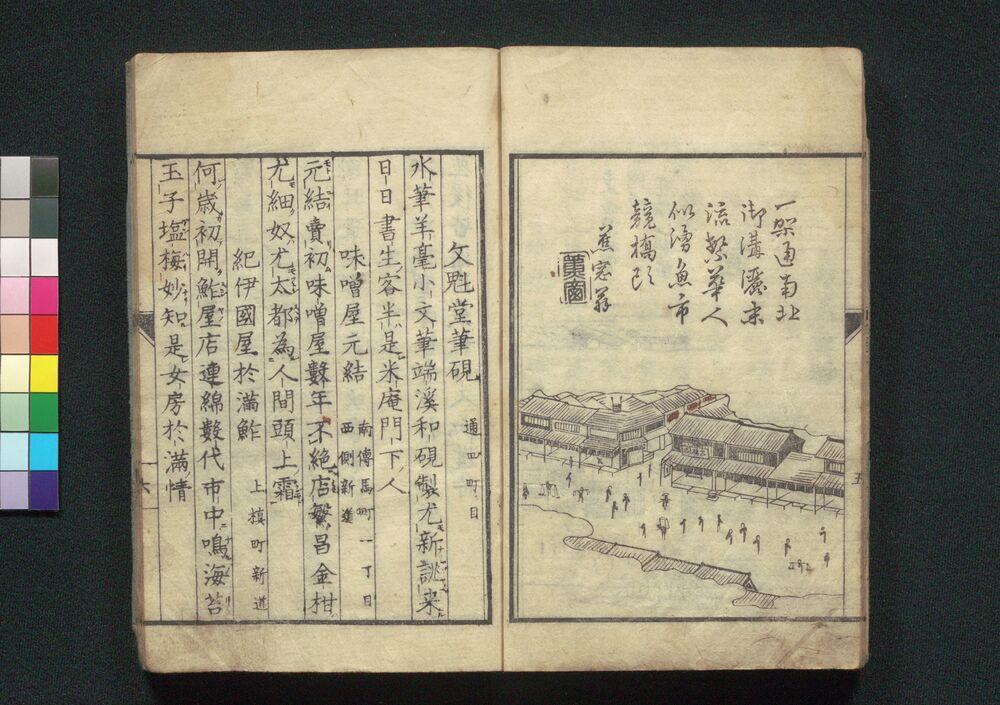 一架通南北
御溝濺末
流繁華人
似湧魚市
競橋頭
蕉窓
五
文魁堂筆硯 通四町目
水筆羊毫小文筆端溪和硯製尤新誂来
日日書生客半是米庵門下人
味噌屋元結 南傳馬町一丁目西側新道
元結賣初味噌屋數年不絶店繁昌金柑
尤細奴尤太都為人間頭上霜
紀伊國屋於滿鮓 上槙町新道
何歳初開鮓屋店連綿數代市中鳴海苔
玉子塩梅妙知是女房於滿情
六